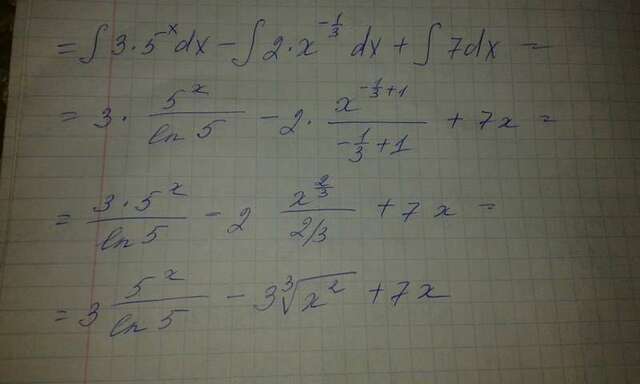 = ∫ 3·5^x dx − ∫ 2·x^(-1/3) dx + ∫ 7dx =
= 3 · 5^x / ln 5 − 2 · x^(-1/3+1) / (-1/3+1) + 7x =
= 3·5^x / ln 5 − 2 x^(2/3) / (2/3) + 7x =
= 3 5^x / ln 5 − 3 ∛(x^2) + 7x